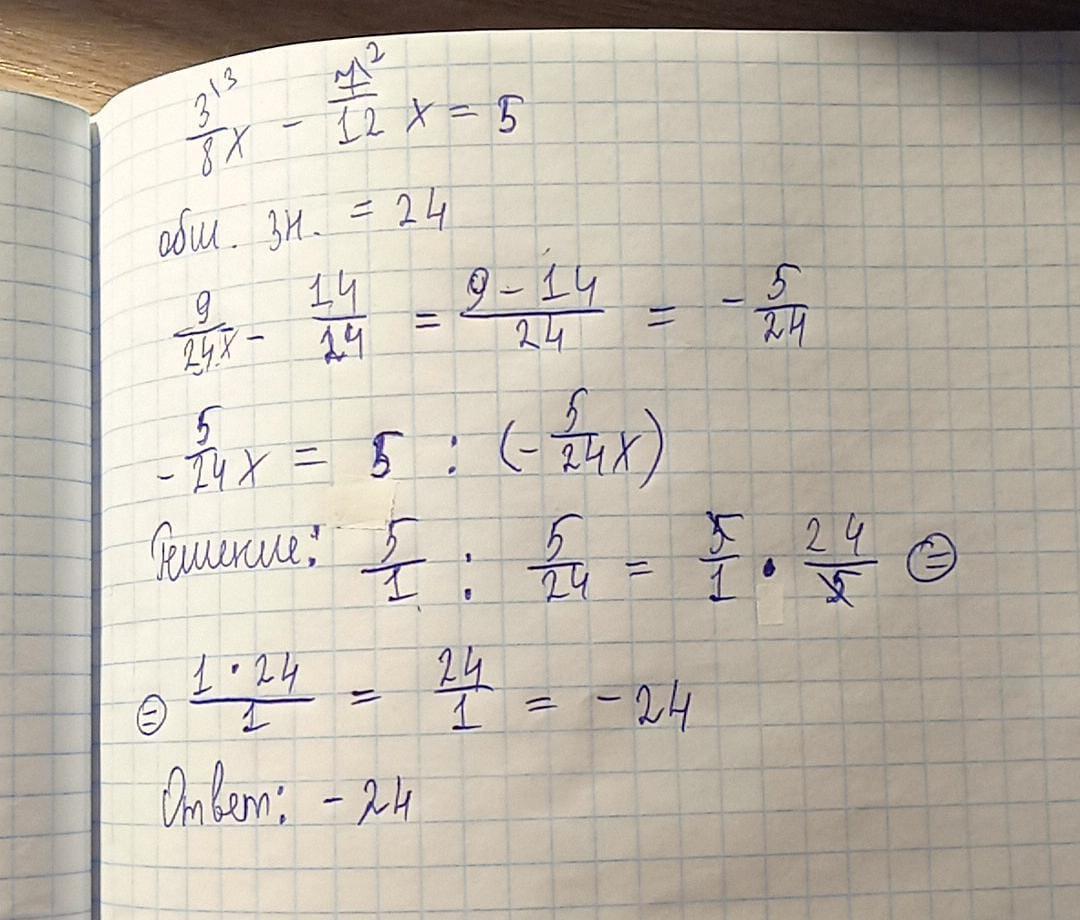 3\3/8 x - 7\2/12 x = 5
общ. зн. = 24
9/24 x - 14/24 = 9-14/24 = -5/24
-5/24 x = 5 : (-5/24 x)
Решение: 5/1 : 5/24 = 5/1 · 24/5 ⊜
⊜ 1·24/1 = 24/1 = -24
Ответ: -24